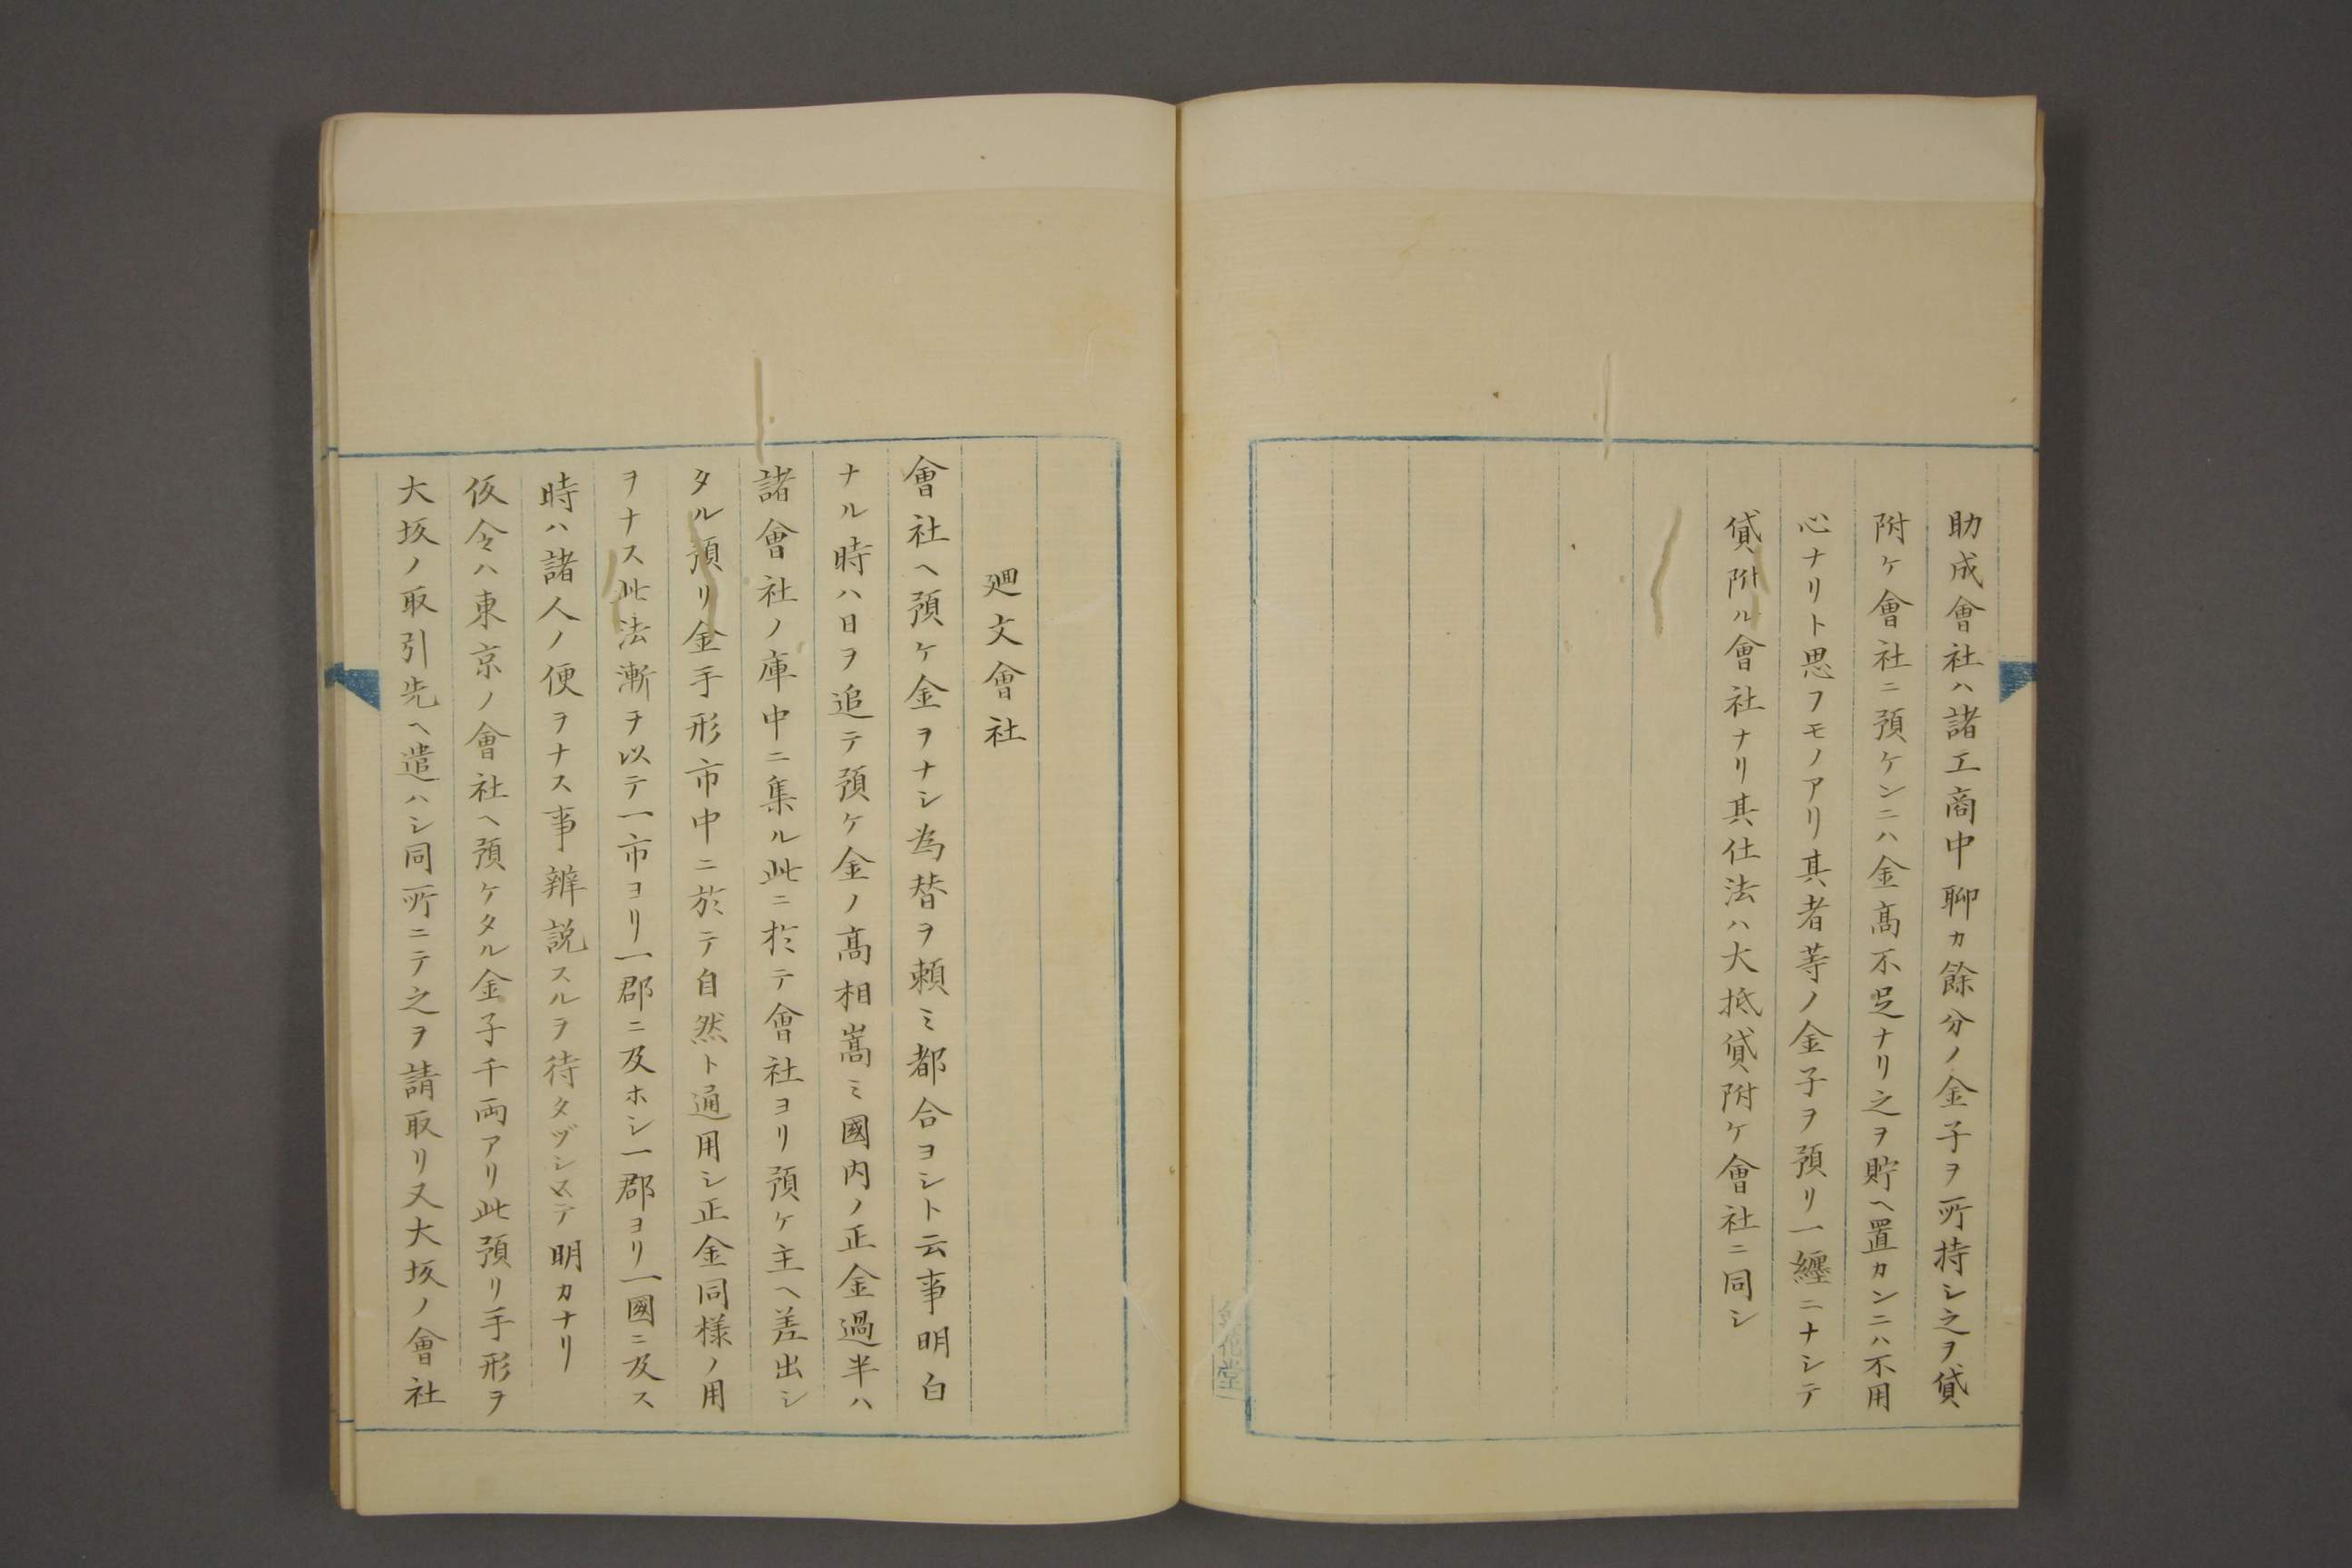 助成會社ハ諸工商中聊カ餘分ノ金子ヲ所持シ之ヲ貸
附ケ會社ニ預ケンニハ金高不足ナリ之ヲ貯ヘ置カンニハ不用
心ナリト思フモノアリ其者等ノ金子ヲ預リ一纏ニナシテ
貸附ル會社ナリ其仕法ハ大抵貸附ケ會社ニ同シ
廻文會社
會社ヘ預ケ金ヲナシ為替ヲ頼ミ都合ヨシト云事明白
ナル時ハ日ヲ追テ預ケ金ノ高相嵩ミ國内ノ正金過半ハ
諸會社ノ庫中ニ集ル此ニ於テ會社ヨリ預ケ主ヘ差出シ
タル預リ金手形市中ニ於テ自然ト通用シ正金同様ノ用
ヲナス此法漸ヲ以テ一市ヨリ一郡ニ及ホシ一郡ヨリ一國ニ及ス
時ハ諸人ノ便ヲナス事辨説スルヲ待タヅシテ明カナリ
仮令ハ東京ノ會社ヘ預ケタル金子千両アリ此預リ手形ヲ
大坂ノ取引先ヘ遣ハシ同所ニテ之ヲ請取リ又大坂ノ會社